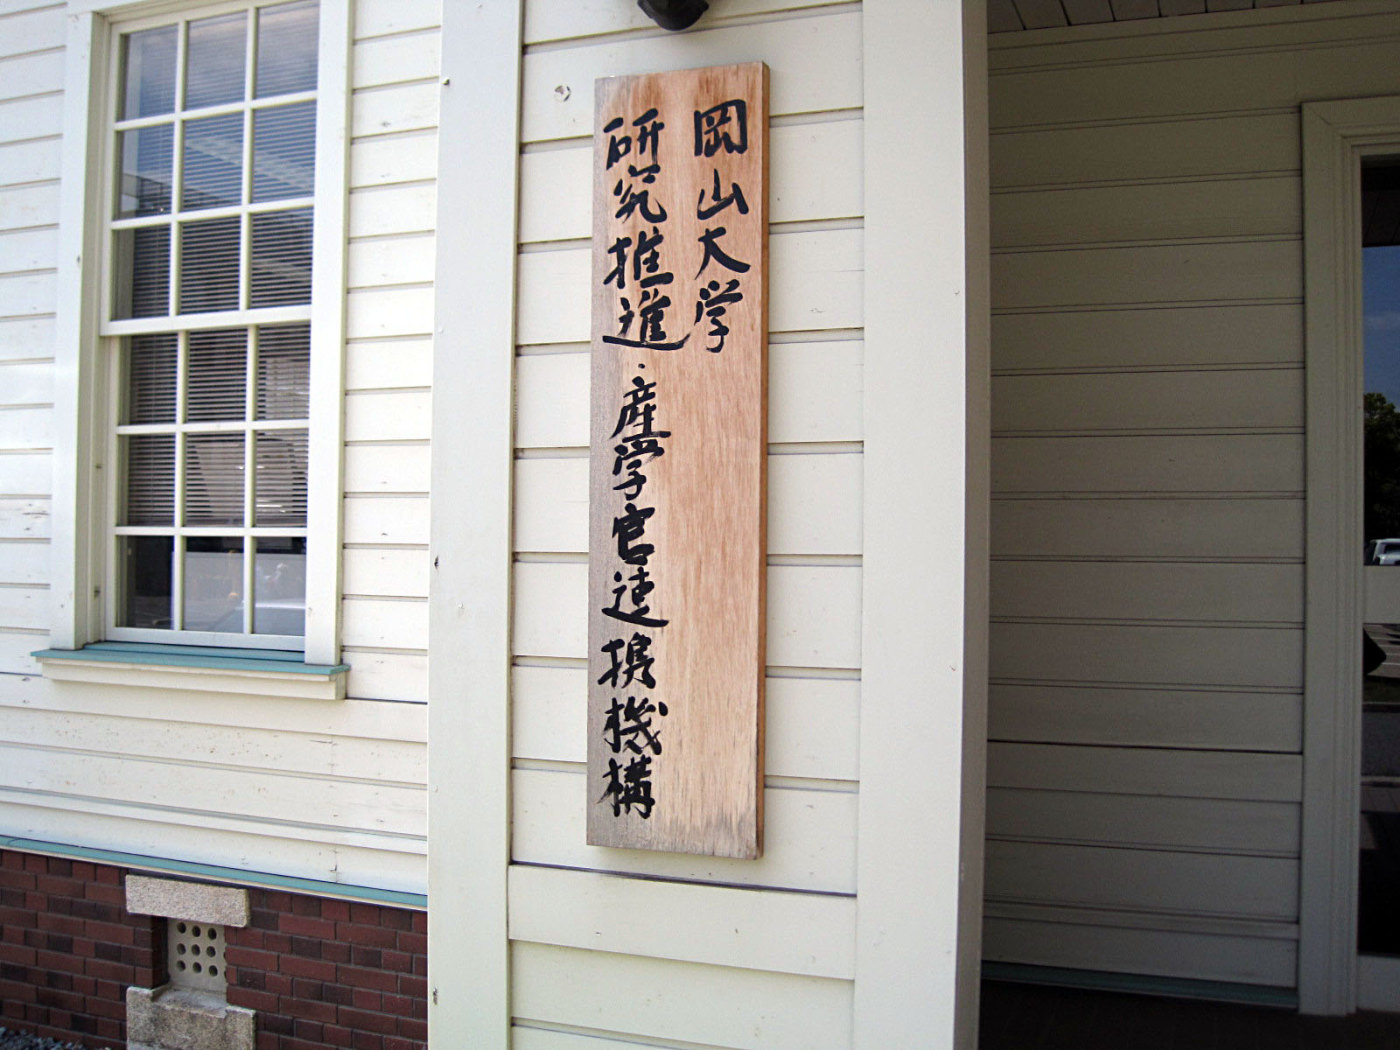 岡山大学
研究推進・産学官連携機構